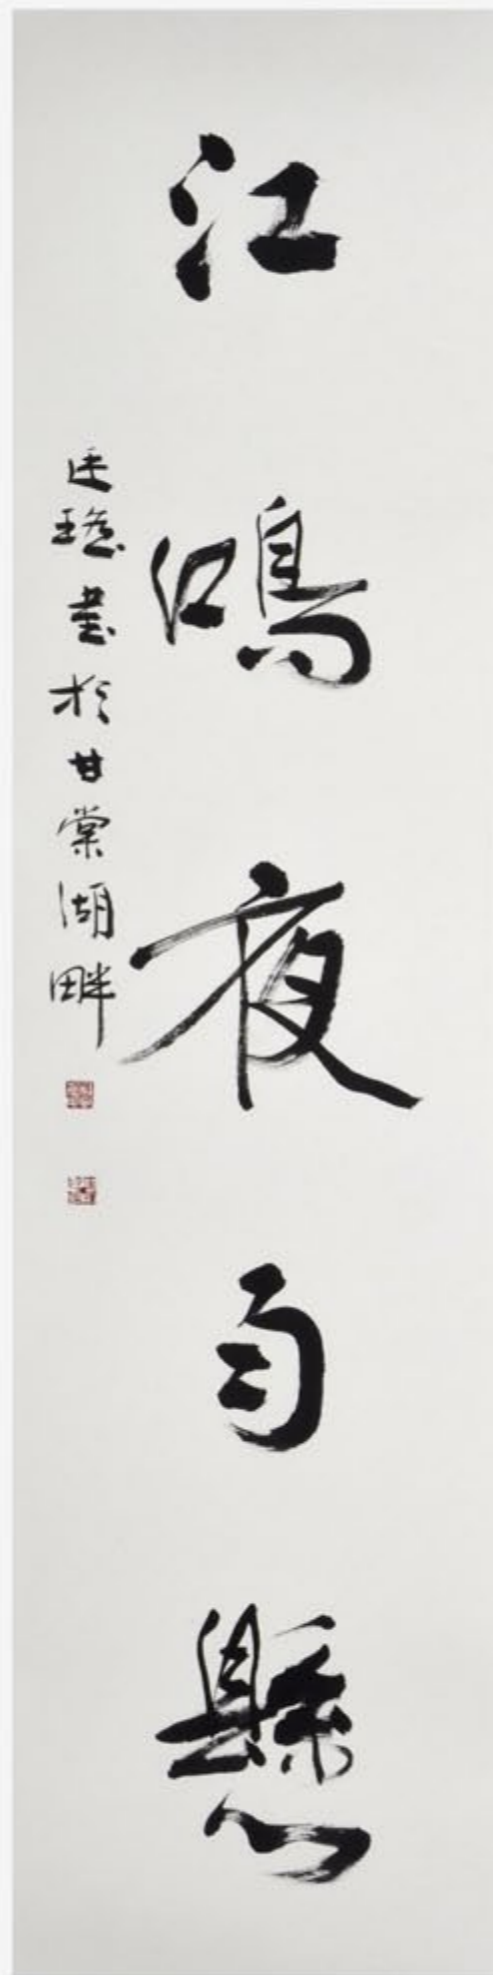 江鳴夜雨懸
書於甘棠湖畔